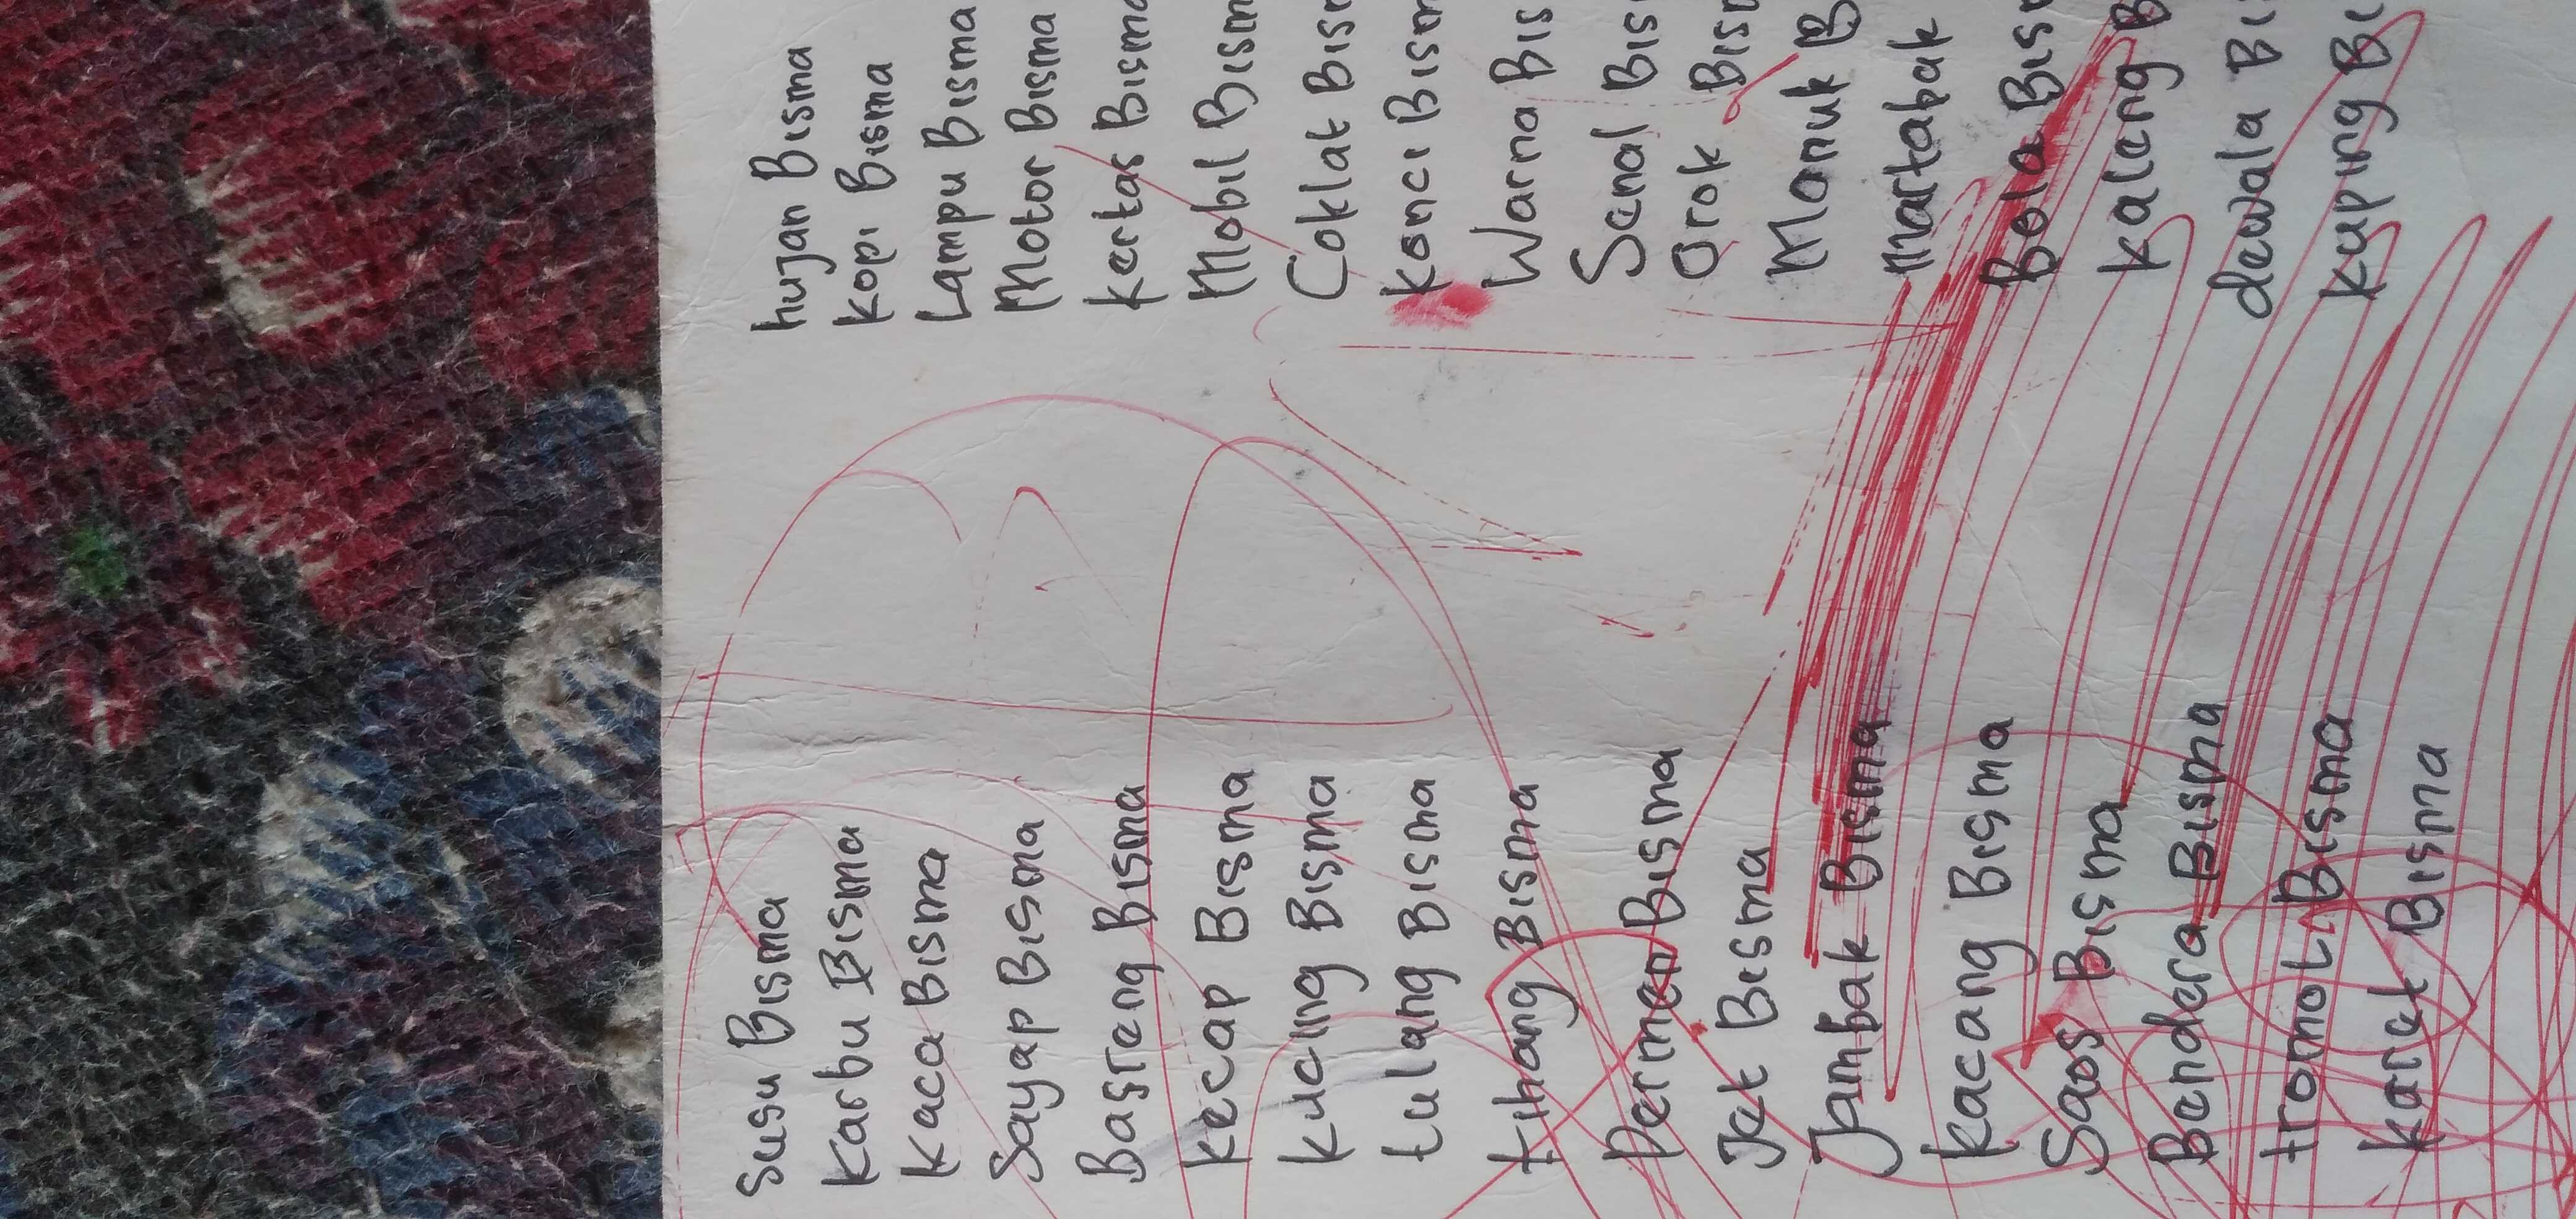 Susu Bisma
Karbu Bisma
Kaca Bisma
Sayap Bisma
Basreng Bisma
Kecap Bisma
Kucing Bisma
tulang Bisma
tihang Bisma
Permen Bisma
Jet Bisma
Jambak Bisma
Kacang Bisma
Saos Bisma
Bendera Bisma
tromol Bisma
Karet Bisma
hujan Bisma
Kopi Bisma
Lampu Bisma
Motor Bisma
Kertas Bisma
Mobil Bism
Coklat Bis
Konci Bism
Warna Bis
Senal Bis
Orok Bis
Manuk B
Martabak
Bola Bis
Kaleng B
dewala Bi
Kuping Bi